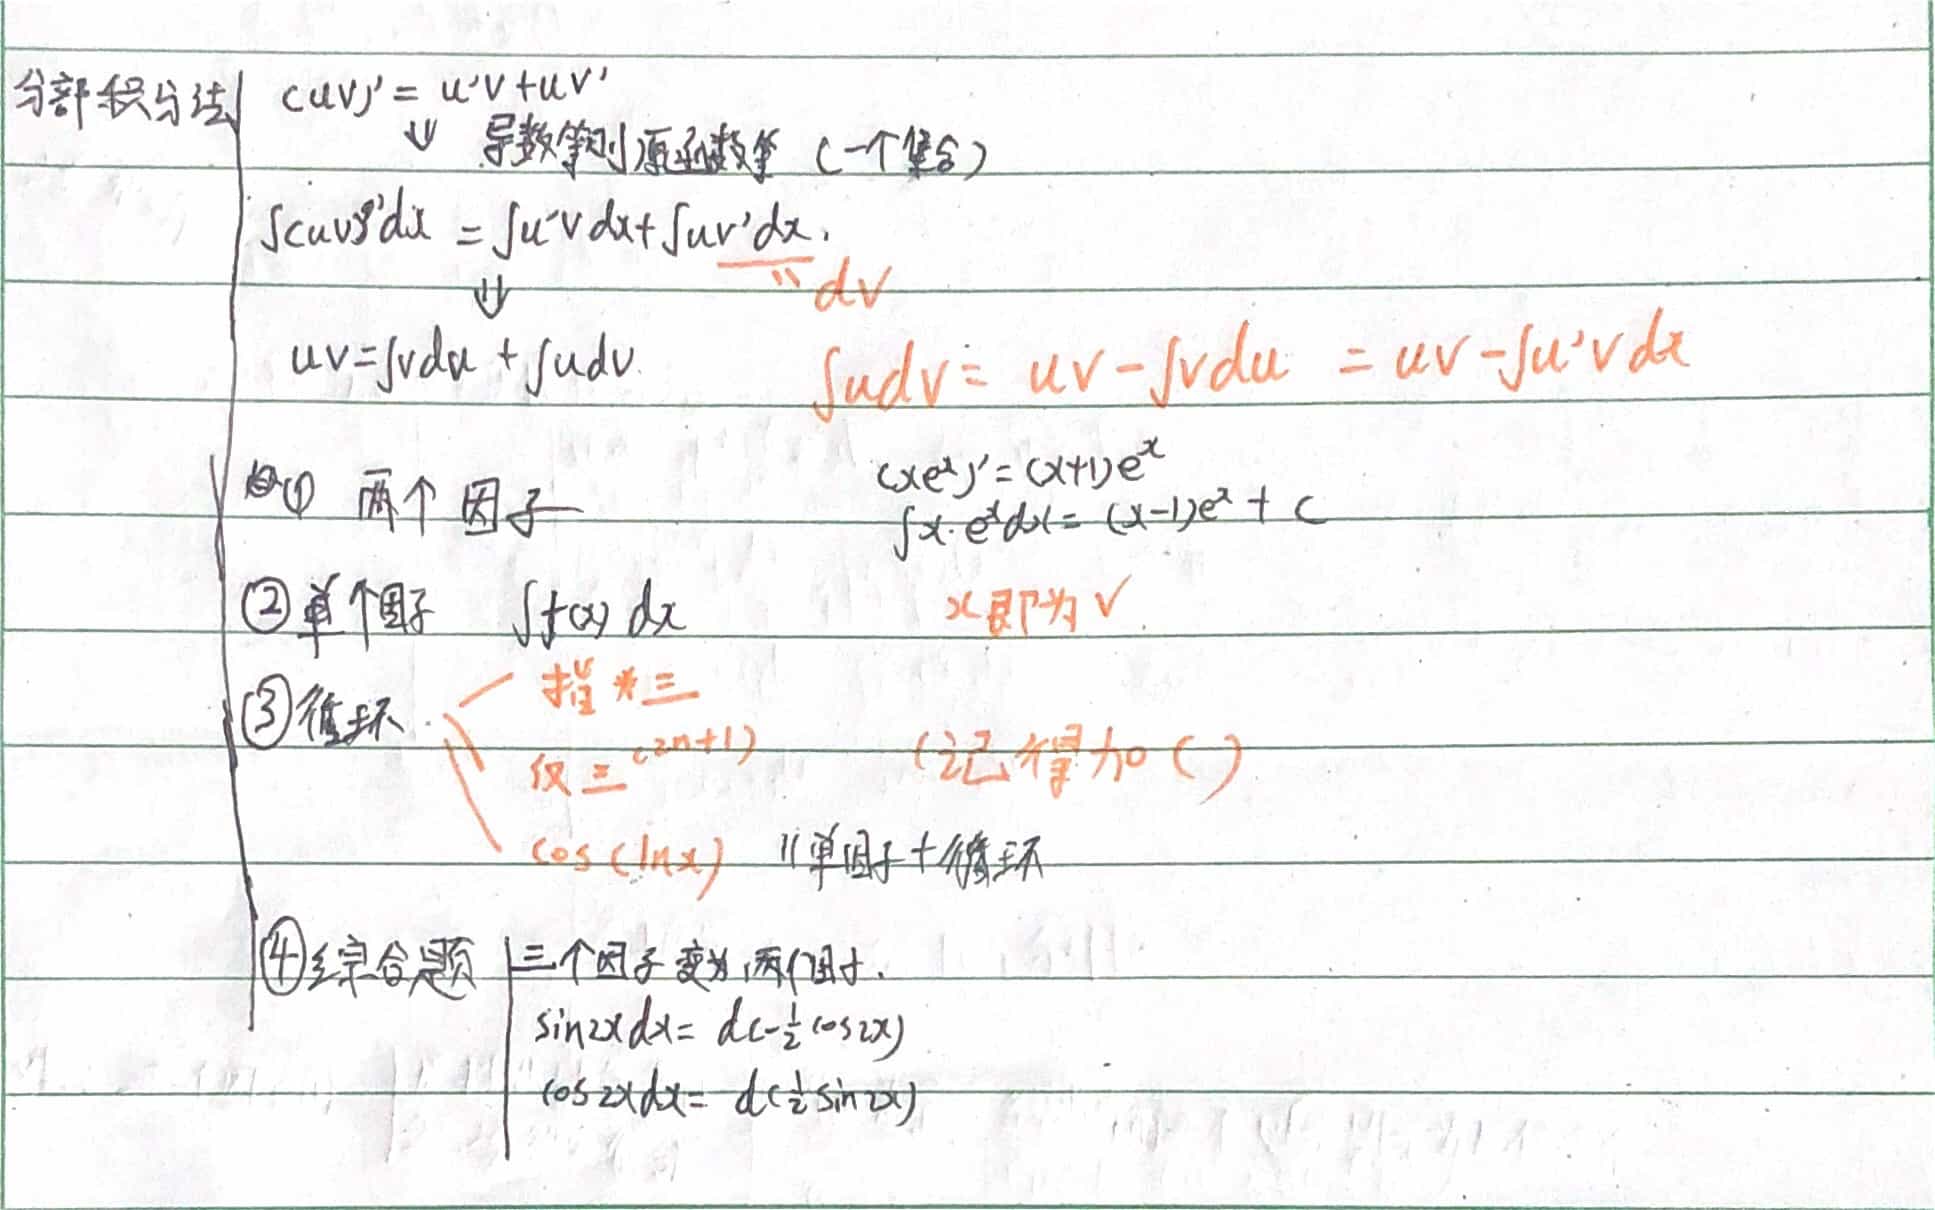 分部积分法
(uv)' = u'v + uv'
⇓ 导数等则原函数等 (一个集合)
∫(uv)'dx = ∫u'v dx + ∫uv'dx.
⇓ " dv
uv = ∫vdu + ∫udv. ∫udv = uv - ∫vdu = uv - ∫u'v dx
① 两个因子 (xe^x)' = (x+1)e^x
∫x·e^x dx = (x-1)e^x + C
② 单个因子 ∫f(x) dx x即为v
③ 循环 指*三
仅三^(2n+1) (记得加C)
cos(lnx) "单因子+循环
④ 综合题 三个因子变为两个因子.
sin2x dx = d(-1/2 cos2x)
cos2x dx = d(1/2 sin2x)